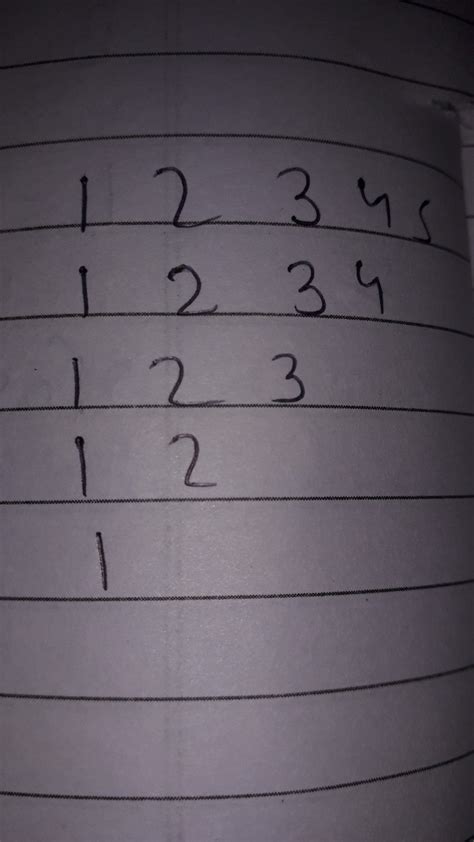 1 2 3 4 5
1 2 3 4
1 2 3
1 2
1